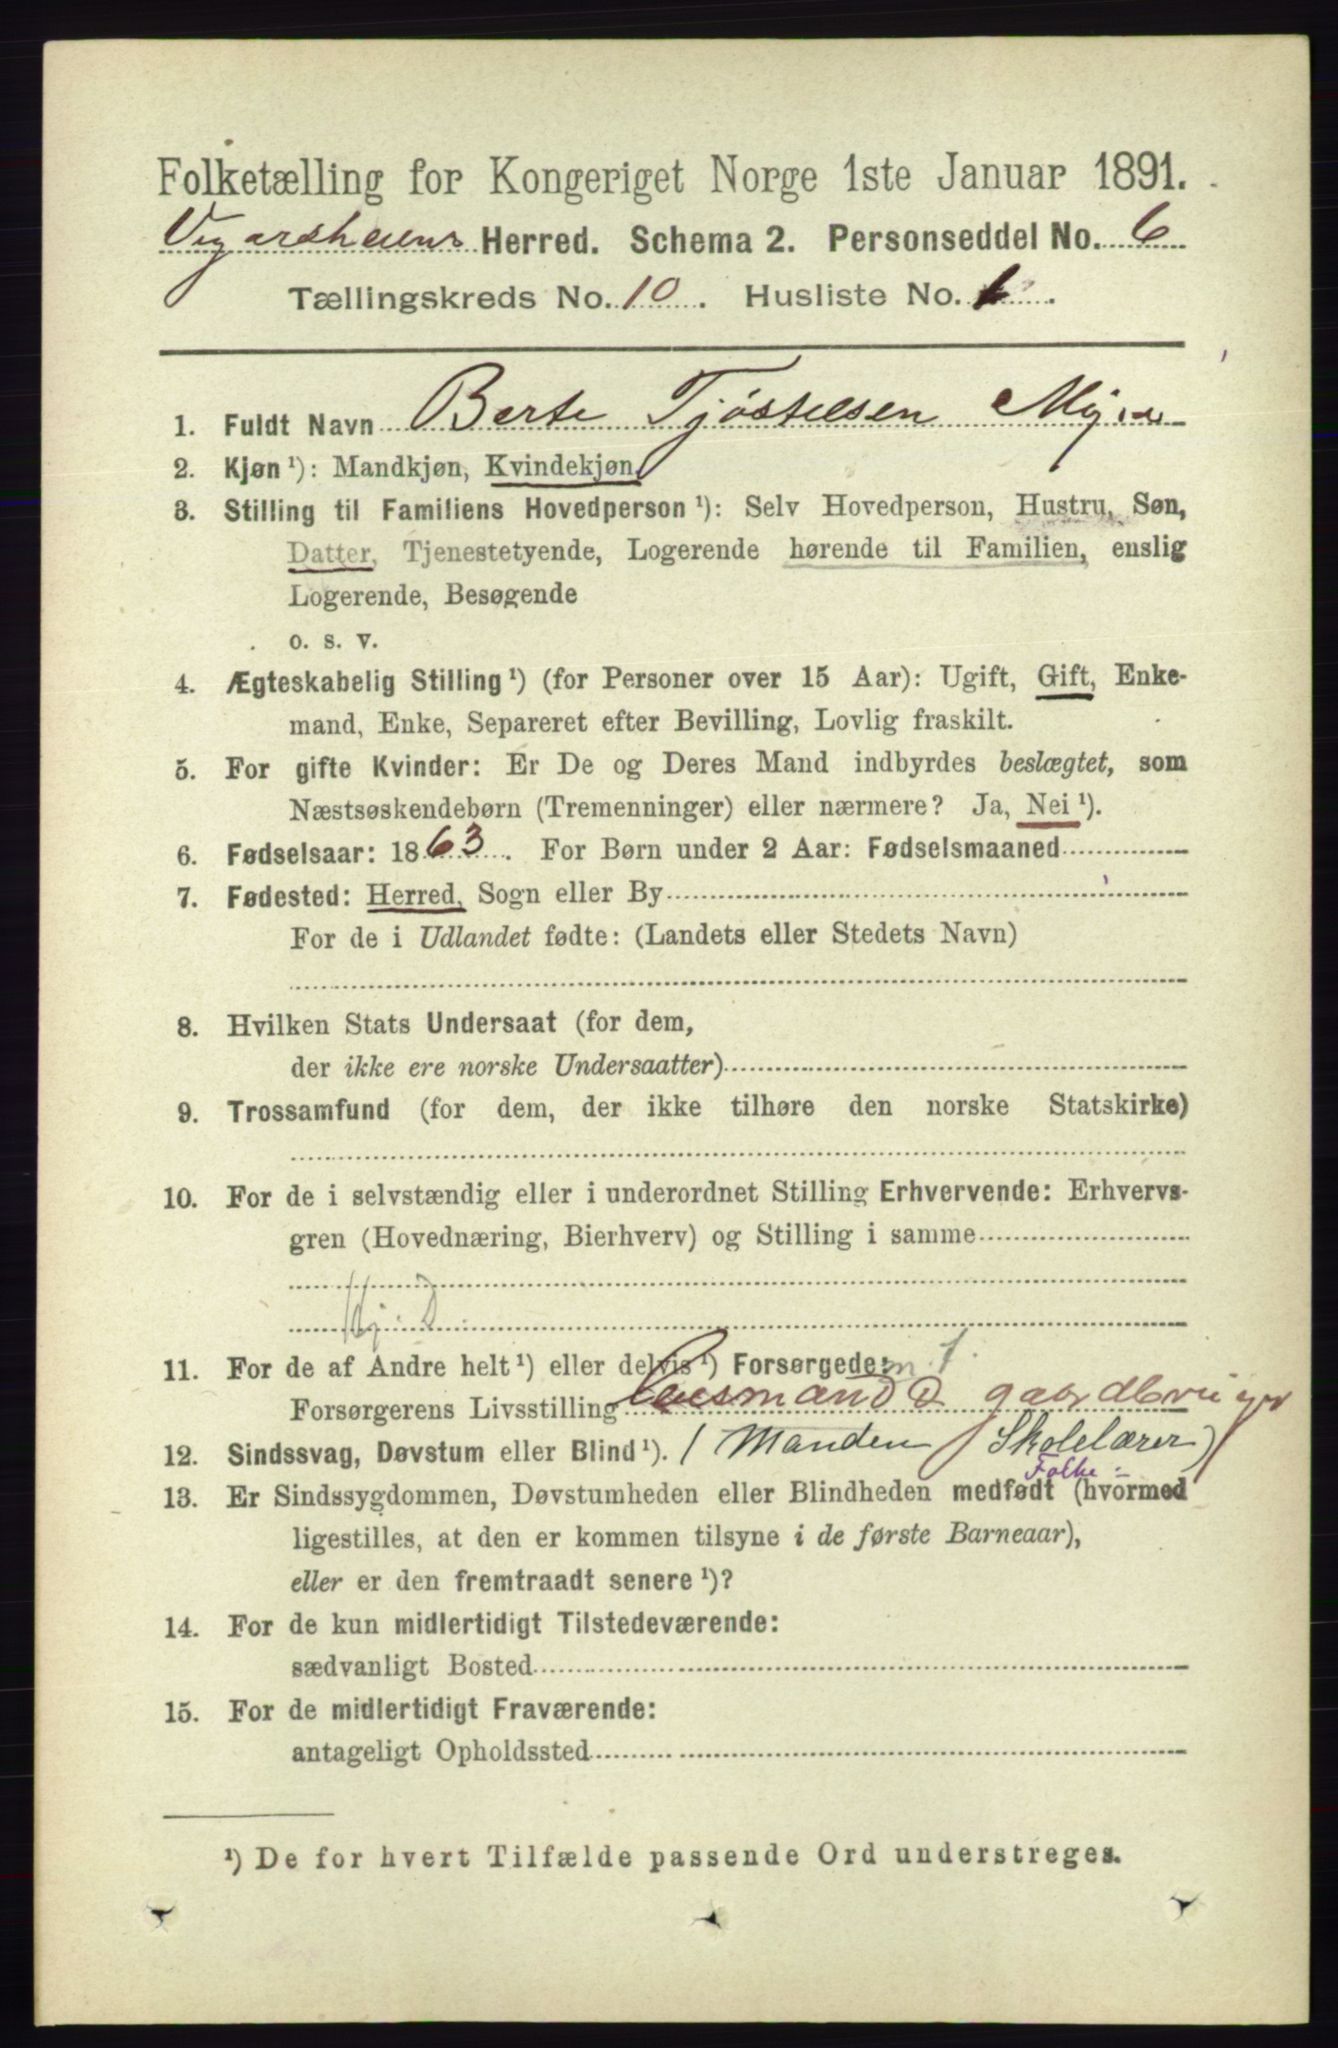 Folketælling for Kongeriget Norge 1ste Januar 1891.
Vegardsheiens Herred. Schema 2. Personseddel No. 6
Tællingskreds No. 10. Husliste No. 1.
1. Fuldt Navn Berte Tjøstelsen Myra
2. Kjøn ¹): Mandkjøn, Kvindekjøn.
3. Stilling til Familiens Hovedperson ¹): Selv Hovedperson, Hustru, Søn,
Datter, Tjenestetyende, Logerende hørende til Familien, enslig
Logerende, Besøgende
o. s. v.
4. Ægteskabelig Stilling ¹) (for Personer over 15 Aar): Ugift, Gift, Enke-
mand, Enke, Separeret efter Bevilling, Lovlig fraskilt.
5. For gifte Kvinder: Er De og Deres Mand indbyrdes beslægtet, som
Næstsøskendebørn (Tremenninger) eller nærmere? Ja, Nei ¹).
6. Fødselsaar: 1863. For Børn under 2 Aar: Fødselsmaaned
7. Fødested: Herred, Sogn eller By
For de i Udlandet fødte: (Landets eller Stedets Navn)
8. Hvilken Stats Undersaat (for dem,
der ikke ere norske Undersaatter)
9. Trossamfund (for dem, der ikke tilhøre den norske Statskirke)
10. For de i selvstændig eller i underordnet Stilling Erhvervende: Erhvervs-
gren (Hovednæring, Bierhverv) og Stilling i samme
11. For de af Andre helt ¹) eller delvis ¹) Forsørgede: m. f.
Forsørgerens Livsstilling Lensmand & gaardbruger
12. Sindssvag, Døvstum eller Blind ¹). (Manden Skolelærer)
Folke=
13. Er Sindssygdommen, Døvstumheden eller Blindheden medfødt (hvormed
ligestilles, at den er kommen tilsyne i de første Barneaar),
eller er den fremtraadt senere ¹)?
14. For de kun midlertidigt Tilstedeværende:
sædvanligt Bosted
15. For de midlertidigt Fraværende:
antageligt Opholdssted
¹) De for hvert Tilfælde passende Ord understreges.